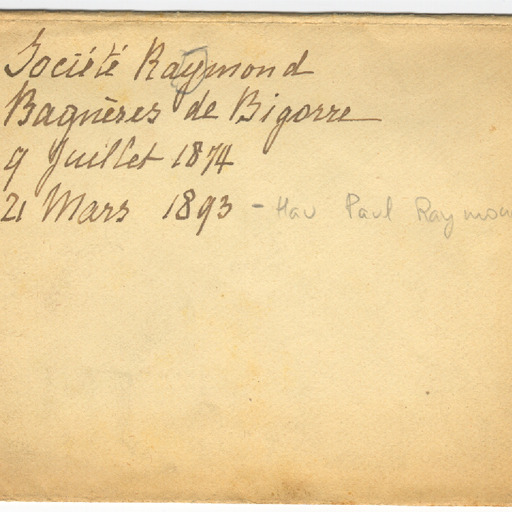 Société Raymond
Bagnères de Bigorre
9 Juillet 1874
21 Mars 1893 - Hav Paul Raymon